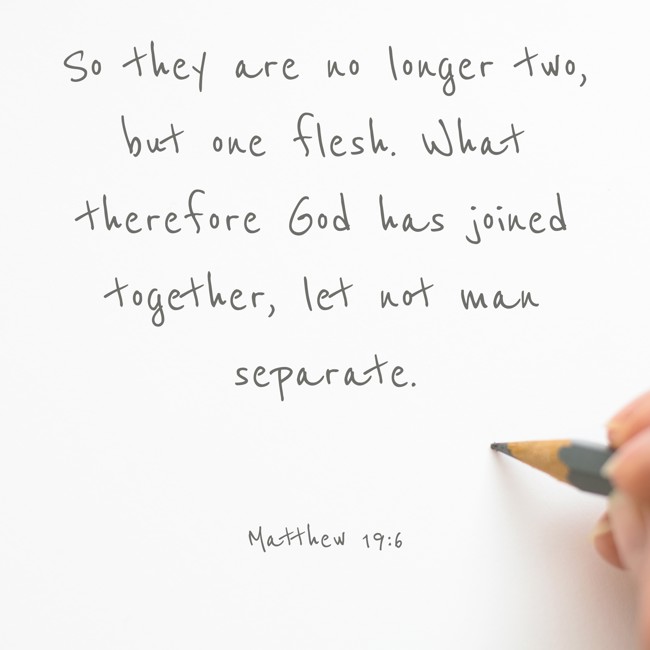 So they are no longer two,
but one flesh. What
therefore God has joined
together, let not man
separate.
Matthew 19:6